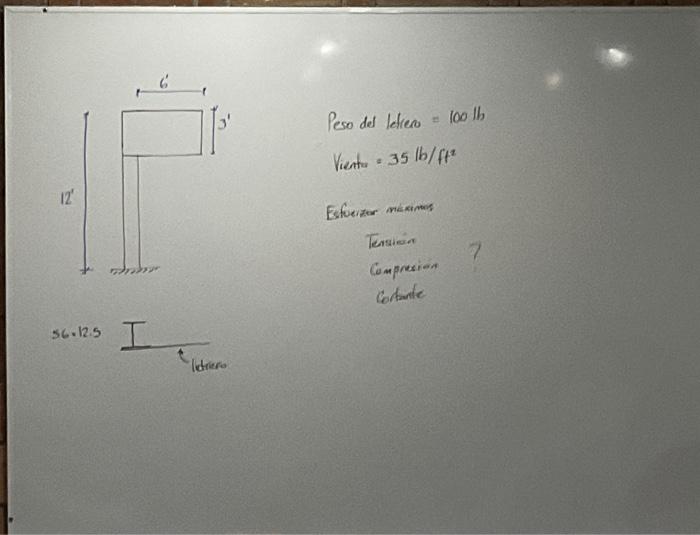 6'
3'
12'
Peso del letrero = 100 lb
Viento = 35 lb/ft²
Esfuerzos máximos
Tensión
Compresión ?
Cortante
S6×12.5
letrero